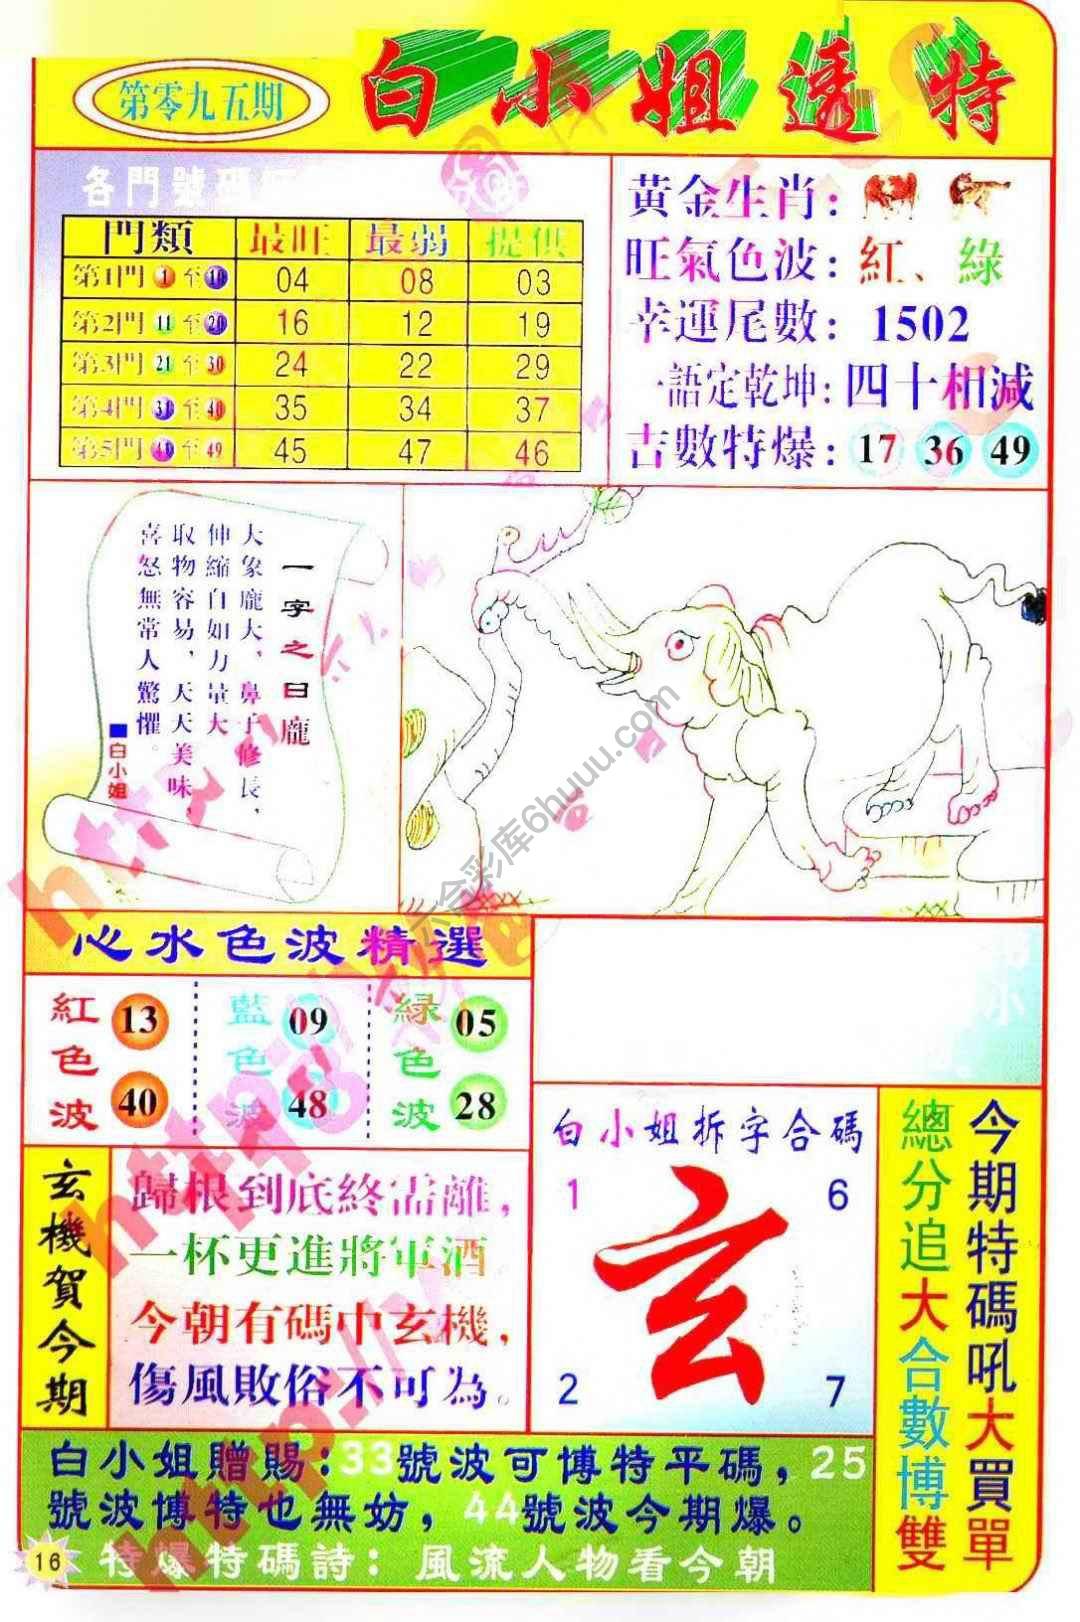 第零九五期
白小姐透特
各門號碼
門類 最旺 最弱 提供
第1門 1 至 10 04 08 03
第2門 11 至 20 16 12 19
第3門 21 至 30 24 22 29
第4門 31 至 40 35 34 37
第5門 41 至 49 45 47 46
黃金生肖:
旺氣色波:紅、綠
幸運尾數:1502
一語定乾坤:四十相減
吉數特爆:17 36 49
一字之曰龐
大象龐大,鼻子修長,
伸縮自如力量大
取物容易,天天美味,
喜怒無常人驚懼。
■白小姐
六合彩库6huuu.com
心水色波精選
紅色波 13 40
藍色波 09 48
緑色波 05 28
玄機賀今期
歸根到底終需離,
一杯更進將軍酒
今朝有碼中玄機,
傷風敗俗不可為。
白小姐拆字合碼
1 6
玄
2 7
今期特碼吼大買單
總分追大合數博雙
白小姐贈賜:33號波可博特平碼,25
號波博特也無妨,44號波今期爆。
特爆特碼詩:風流人物看今朝
16